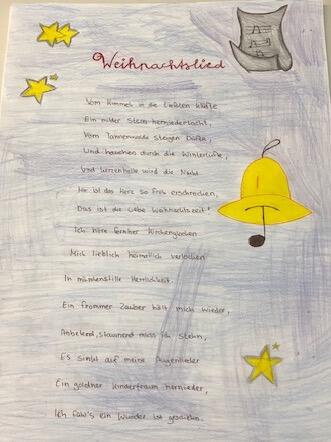 Weihnachtslied
Vom Himmel in die tiefsten Klüfte
Ein milder Stern herniederlacht,
Vom Tannenwalde steigen Düfte,
Und hauchen durch die Winterlüfte,
Und kerzenhelle wird die Nacht
Mir ist das Herz so froh erschrocken,
Das ist die liebe Weihnachtszeit!
Ich höre fernher Kirchenglocken
Mich lieblich heimatlich verlocken
In märchenstille Herrlichkeit.
Ein frommer Zauber hält mich wieder,
Anbetend, staunend muss ich stehn,
Es sinkt auf meine Augenlider
Ein goldner Kindertraum hernieder,
Ich fühl's ein Wunder ist geschehn.